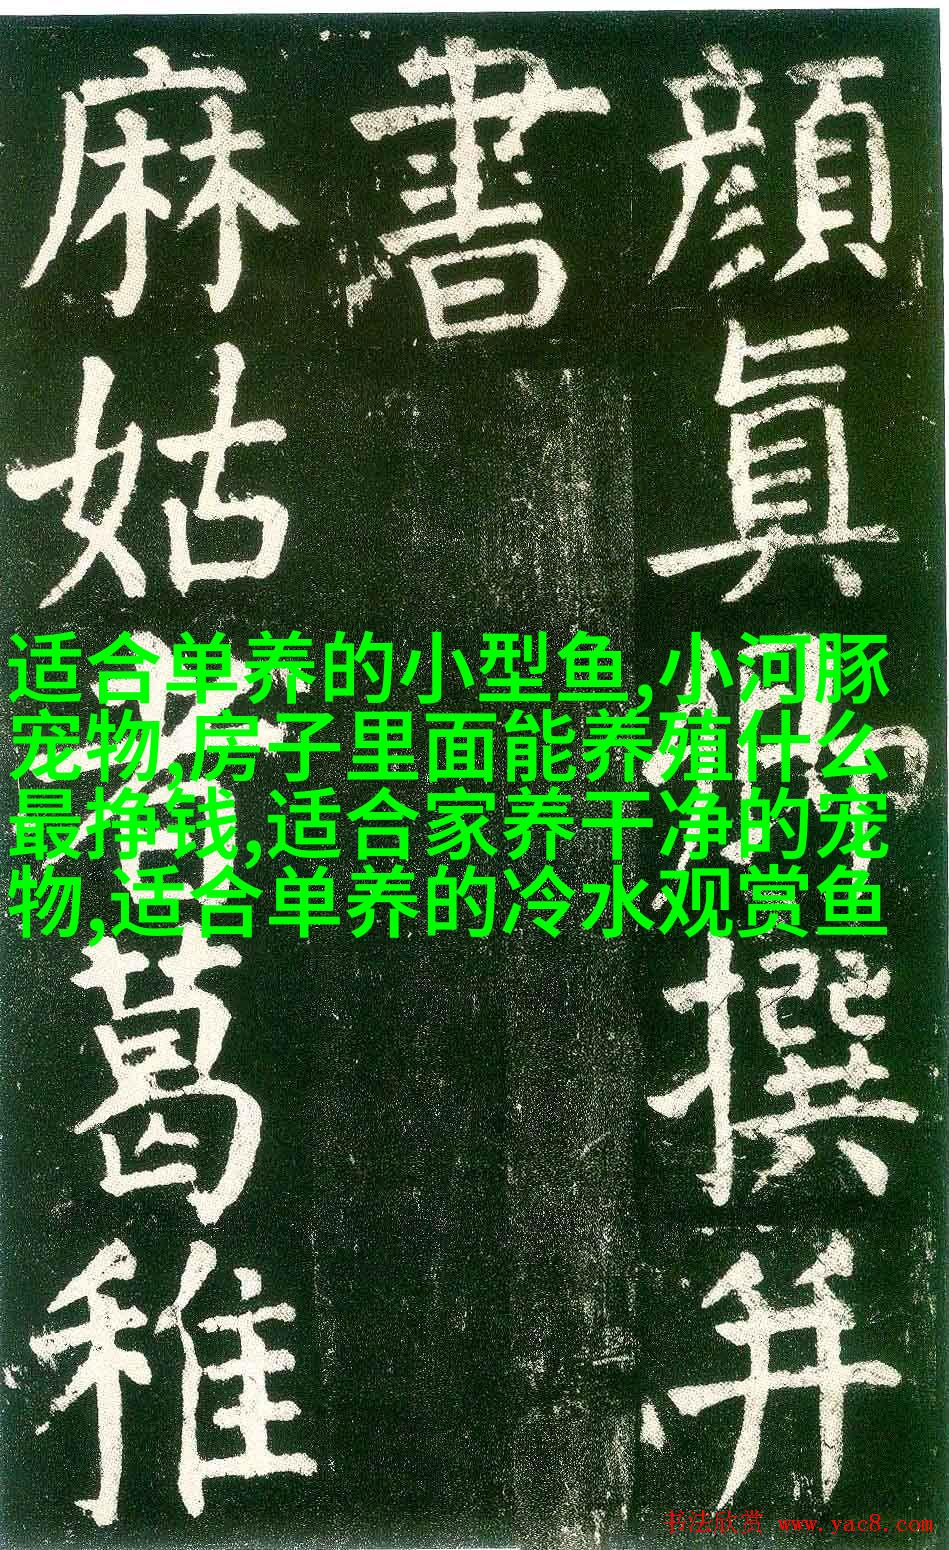 顏眞卿撰并
書
麻姑者葛稚
适合单养的小型鱼,小河豚
宠物,房子里面能养殖什么
最挣钱,适合家养干净的宠
物,适合单养的冷水观赏鱼
书法欣赏 www.yac8.com